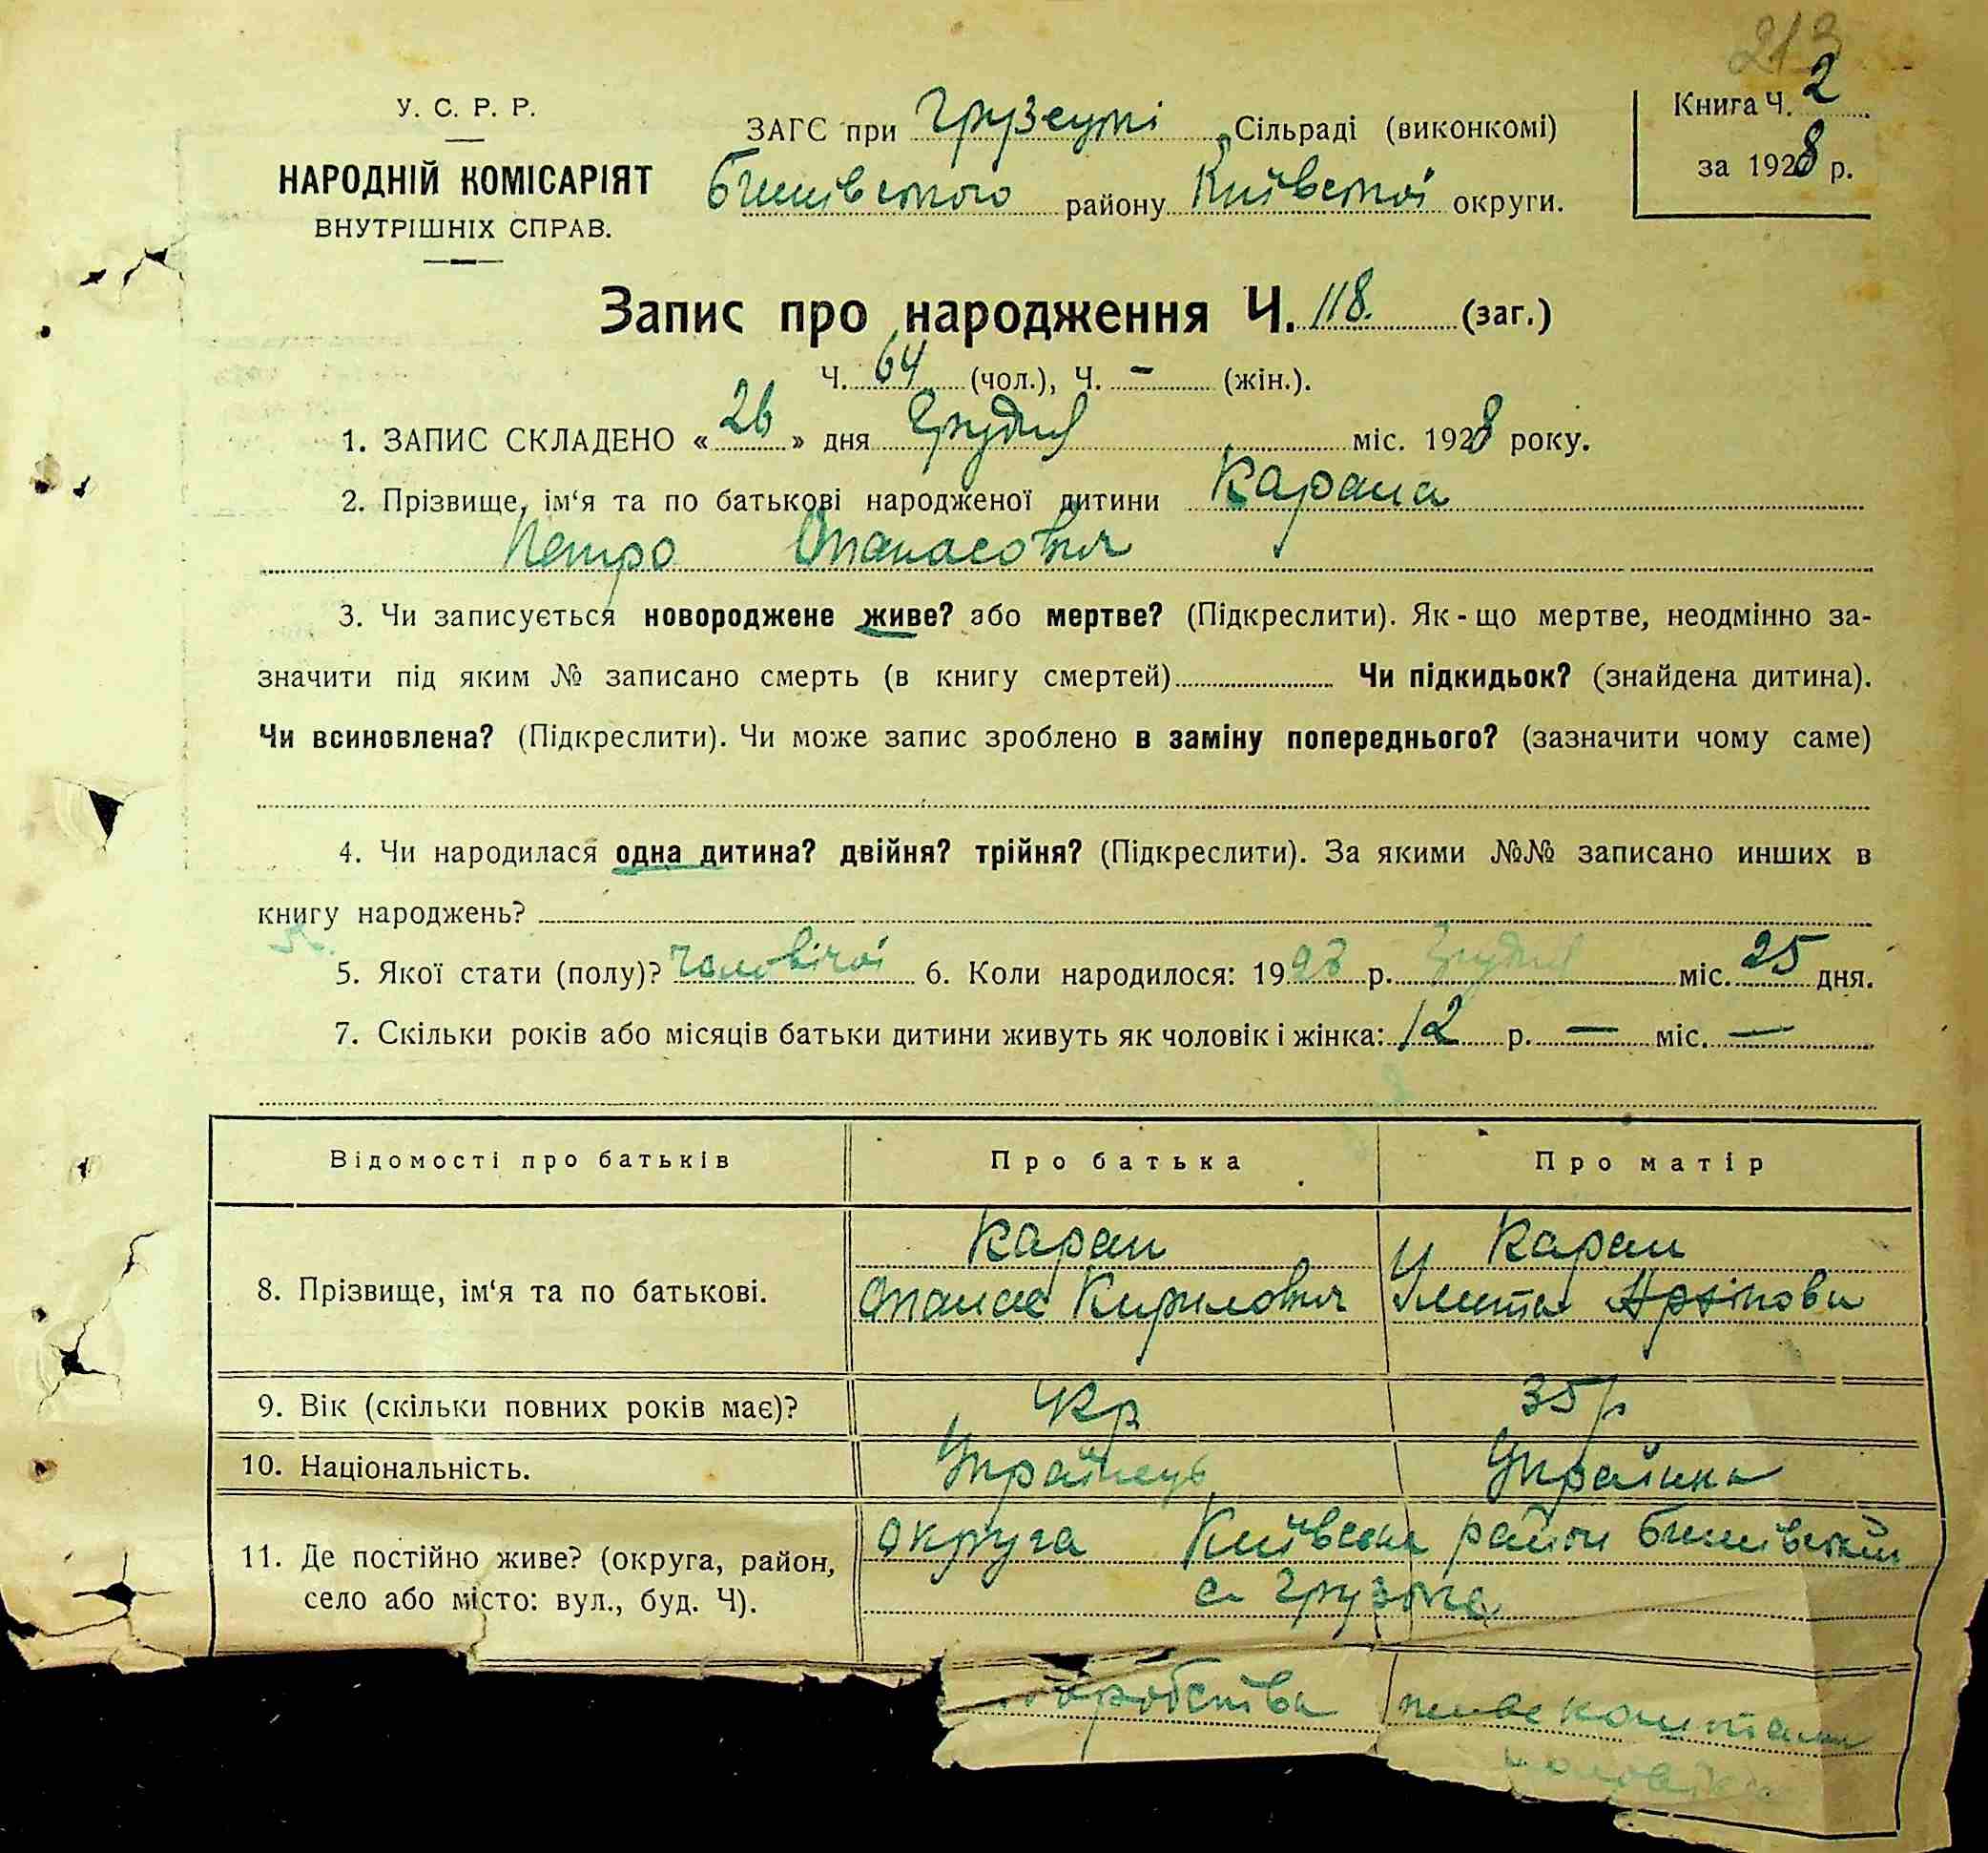 213
У. С. Р. Р.
НАРОДНІЙ КОМІСАРІЯТ
ВНУТРІШНІХ СПРАВ.
ЗАГС при Грузскій Сільраді (виконкомі)
Бишівського району Київської округи.
Книга Ч. 2
за 1928 р.
Запис про народження Ч. 118. (заг.)
Ч. 64 (чол.), Ч. — (жін.).
1. ЗАПИС СКЛАДЕНО « 26 » дня Грудня міс. 1928 року.
2. Прізвище, ім‘я та по батькові народженої дитини Карана
Петро Опанасович
3. Чи записується новороджене живе? або мертве? (Підкреслити). Як - що мертве, неодмінно за-
значити під яким № записано смерть (в книгу смертей) Чи підкидьок? (знайдена дитина).
Чи всиновлена? (Підкреслити). Чи може запис зроблено в заміну попереднього? (зазначити чому саме)
4. Чи народилася одна дитина? двійня? трійня? (Підкреслити). За якими №№ записано инших в
книгу народжень?
5. Якої стати (полу)? чоловічої 6. Коли народилося: 1928 р. Грудня міс. 25 дня.
7. Скільки років або місяців батьки дитини живуть як чоловік і жінка: 12 р. — міс. —
Відомості про батьків Про батька Про матір
8. Прізвище, ім‘я та по батькові.
Каран Каран
Опанас Кирилович
9. Вік (скільки повних років має)? 35 р
10. Національність. Українець Українка
11. Де постійно живе? (округа, район,
село або місто: вул., буд. Ч).
округа Київська район Бишівський
с. Грузьке
живе коштами
чоловіка